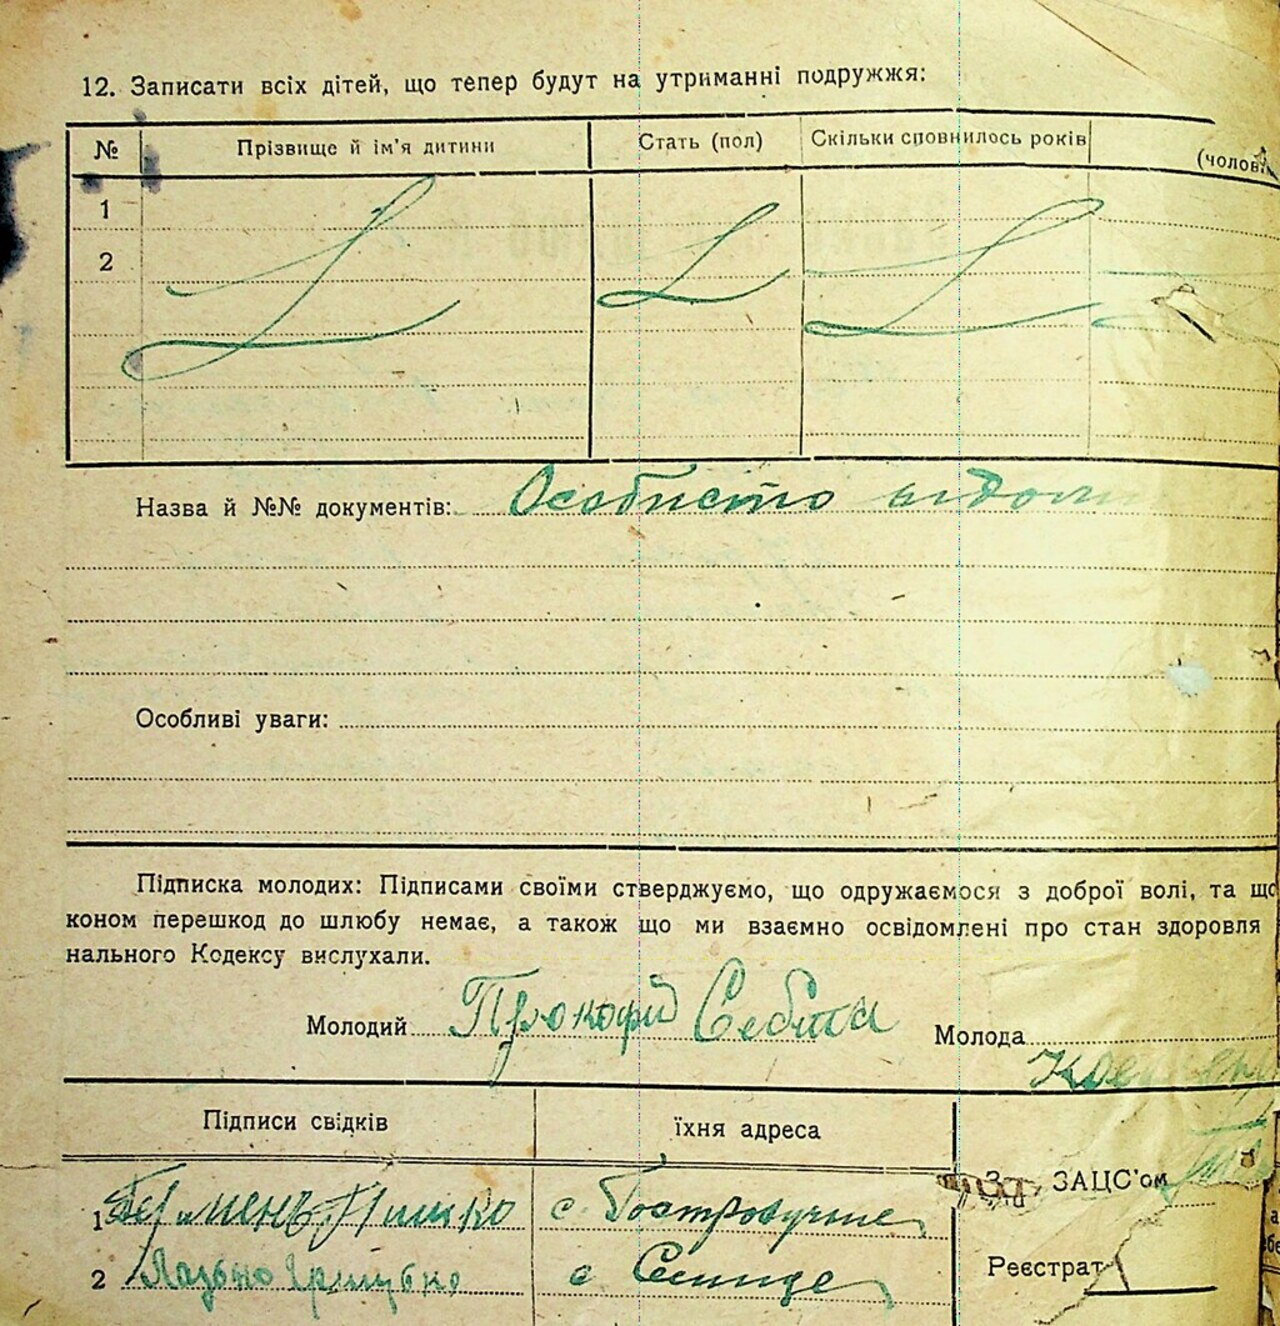 12. Записати всіх дітей, що тепер будут на утриманні подружжя:
№ Прізвище й ім'я дитини Стать (пол) Скільки сповнилось років (чолові
1
2
Назва й №№ документів: Особисто відомі
Особливі уваги:
Підписка молодих: Підписами своїми стверджуємо, що одружаємося з доброї волі, та що
коном перешкод до шлюбу немає, а також що ми взаємно освідомлені про стан здоровля
нального Кодексу вислухали.
Молодий Прокофій Себта Молода
Підписи свідків їхня адреса
Зав. ЗАЦС'ом
1 с.
2 с
Реєстрат